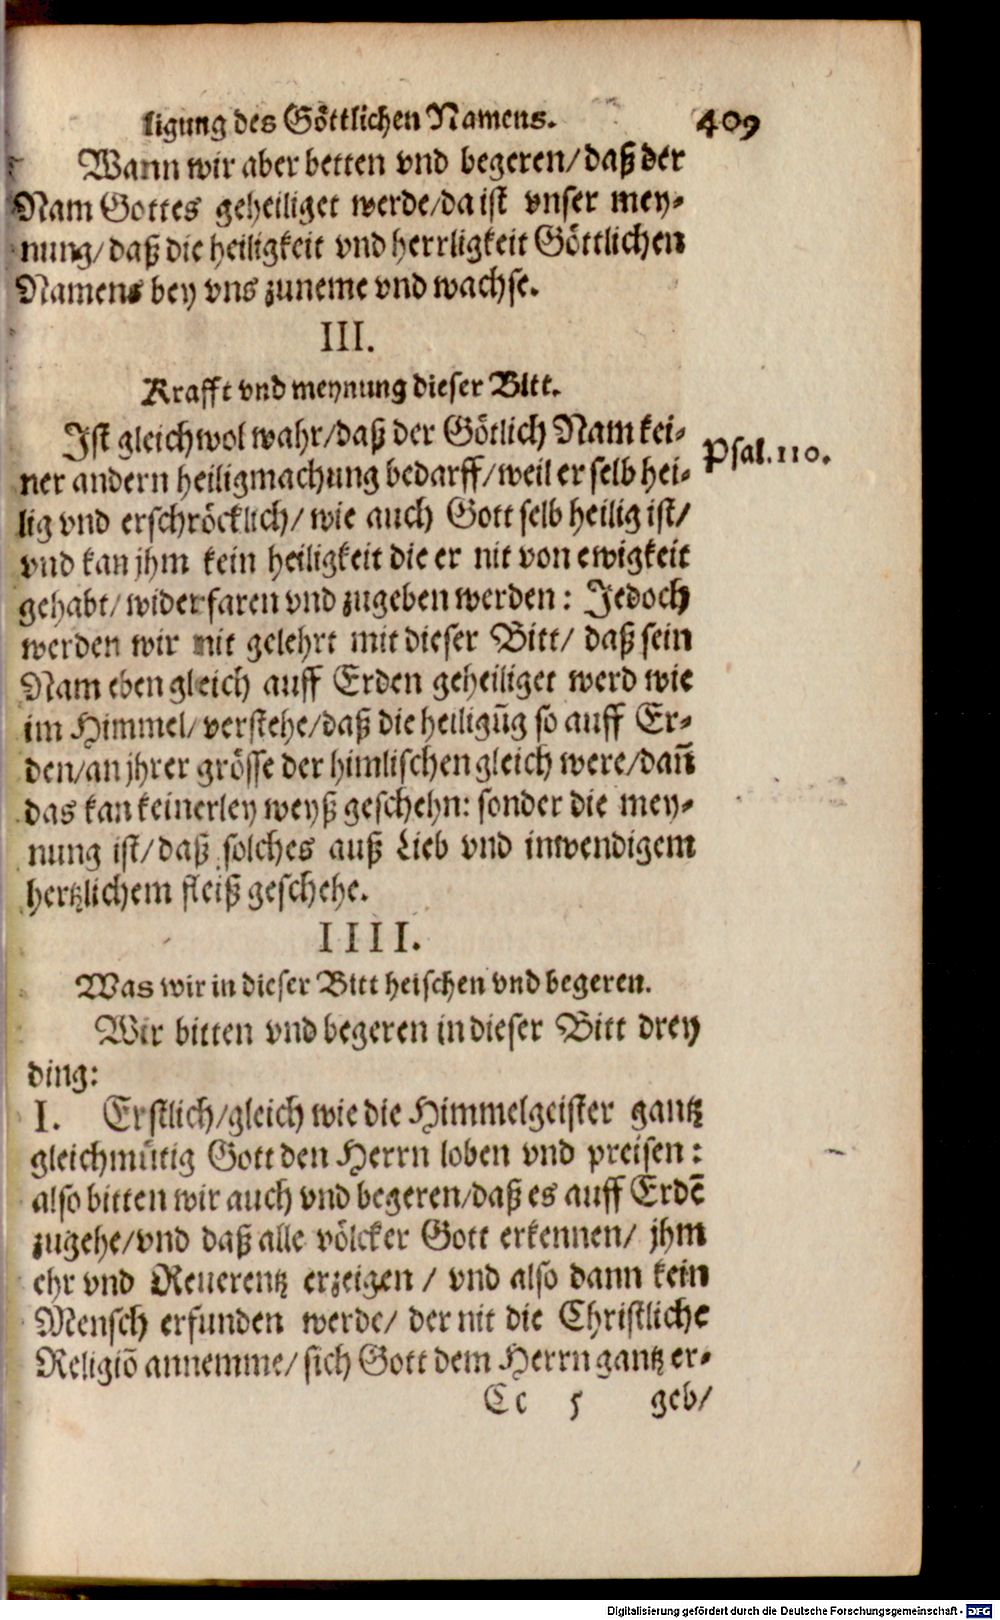 ligung des Göttlichen Namens. 409
Wann wir aber betten vnd begeren/daß der
Nam Gottes geheiliget werde/da ist vnser mey-
nung/daß die heiligkeit vnd herrligkeit Göttlichen
Namens bey vns zuneme vnd wachse.
III.
Krafft vnd meynung dieser Bitt.
Ist gleichwol wahr/daß der Götlich Nam kei-
Psal.110.
ner andern heiligmachung bedarff/weil er selb hei-
lig vnd erschröcklich/ wie auch Gott selb heilig ist/
vnd kan jhm kein heiligkeit die er nit von ewigkeit
gehabt/ widerfaren vnd zugeben werden: Jedoch
werden wir nit gelehrt mit dieser Bitt/ daß sein
Nam eben gleich auff Erden geheiliget werd wie
im Himmel/ verstehe/daß die heiligūg so auff Er-
den/an jhrer grösse der himlischen gleich were/dan̄
das kan keinerley weyß geschehn: sonder die mey-
nung ist/daß solches auß Lieb vnd inwendigem
hertzlichem fleiß geschehe.
IIII.
Was wir in dieser Bitt heischen vnd begeren.
Wir bitten vnd begeren in dieser Bitt drey
ding:
I. Erstlich/gleich wie die Himmelgeister gantz
gleichmütig Gott den Herrn loben vnd preisen:
also bitten wir auch vnd begeren/daß es auff Erdē
zugehe/vnd daß alle völcker Gott erkennen/ jhm
ehr vnd Reuerentz erzeigen / vnd also dann kein
Mensch erfunden werde/ der nit die Christliche
Religiō annemme/ sich Gott dem Herrn gantz er-
Cc 5 geb/
Digitalisierung gefördert durch die Deutsche Forschungsgemeinschaft - DFG